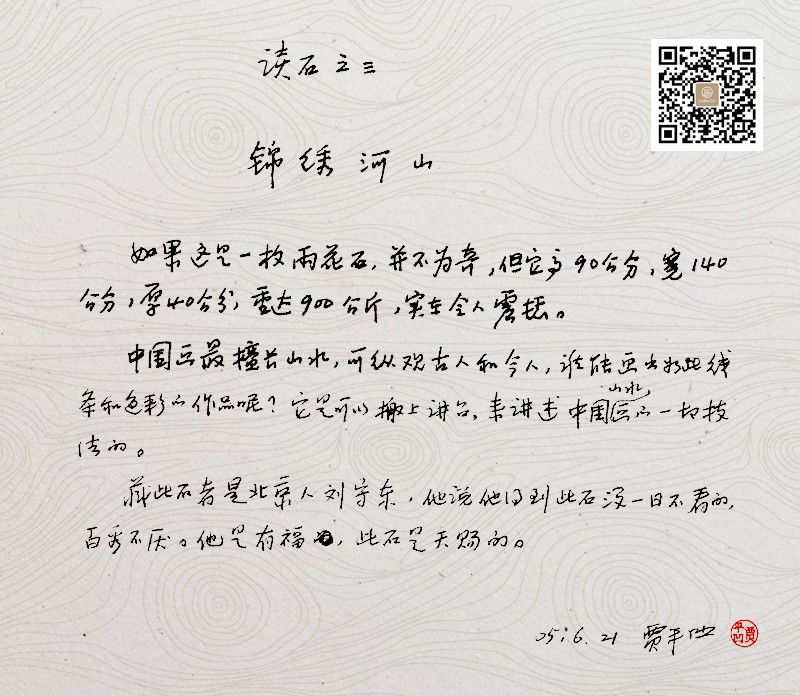 读石之三
锦绣河山
如果这是一枚雨花石，并不为奇，但它高90公分，宽140
公分，厚40公分，重达900公斤，实在令人震撼。
中国画最擅长山水，可纵观古人和今人，谁能画出如此线
条和色彩的作品呢？它是可以搬上讲台，来讲述中国山水画的一切技
法的。
藏此石者是北京人刘宇东，他说他得到此石没一日不看的，
百看不厌。他是有福，此石是天赐的。
05.6.21 贾平凹
贾平凹